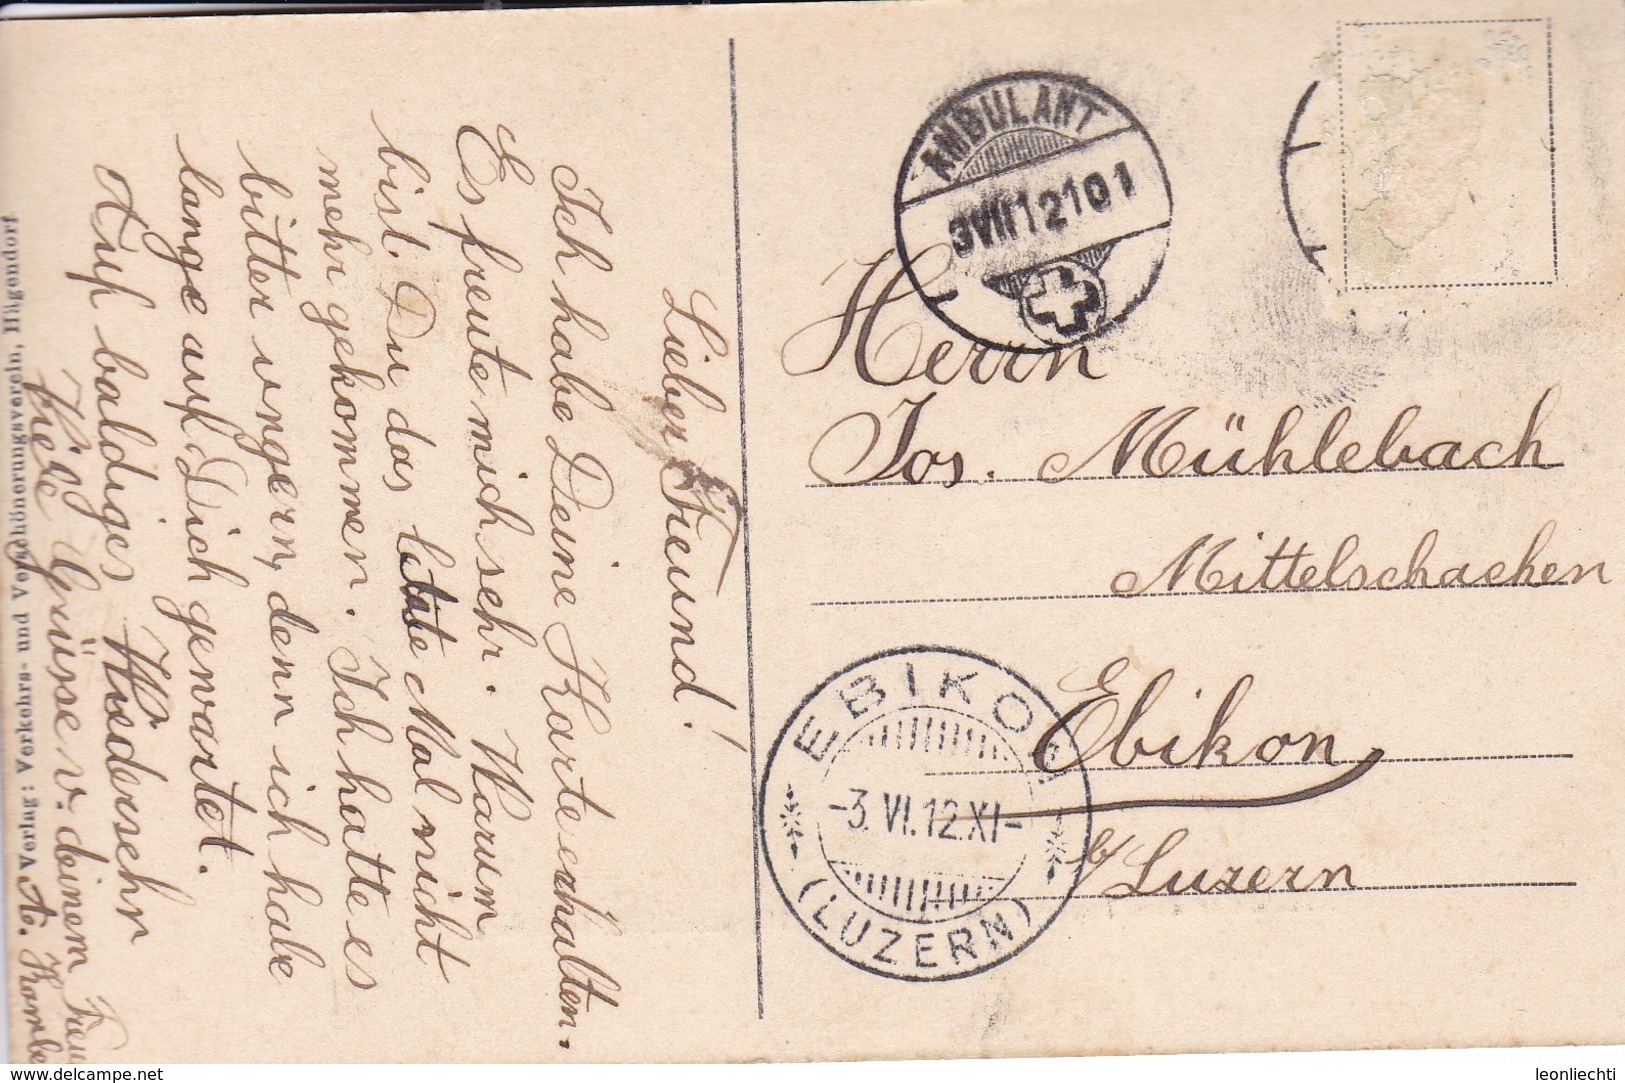 Lieber Freund!
Ich habe Deine Karte erhalten.
Es freute mich sehr. Warum
bist Du das letzte Mal nicht
mehr gekommen. Ich hatte es
bitter ungern, denn ich habe
lange auf Dich gewartet.
Auf baldiges Wiedersehn
Viele Grüsse v. deinem
A Verlag: Verkehrs- und Verschönerungsverein, Hägendorf
AMBULANT
3VII12101
Herrn
Jos. Mühlebach
Mittelschachen
Ebikon
b/Luzern
EBIKON
-3.VI.12.XI-
(LUZERN)
delcampe.net
leonliechti